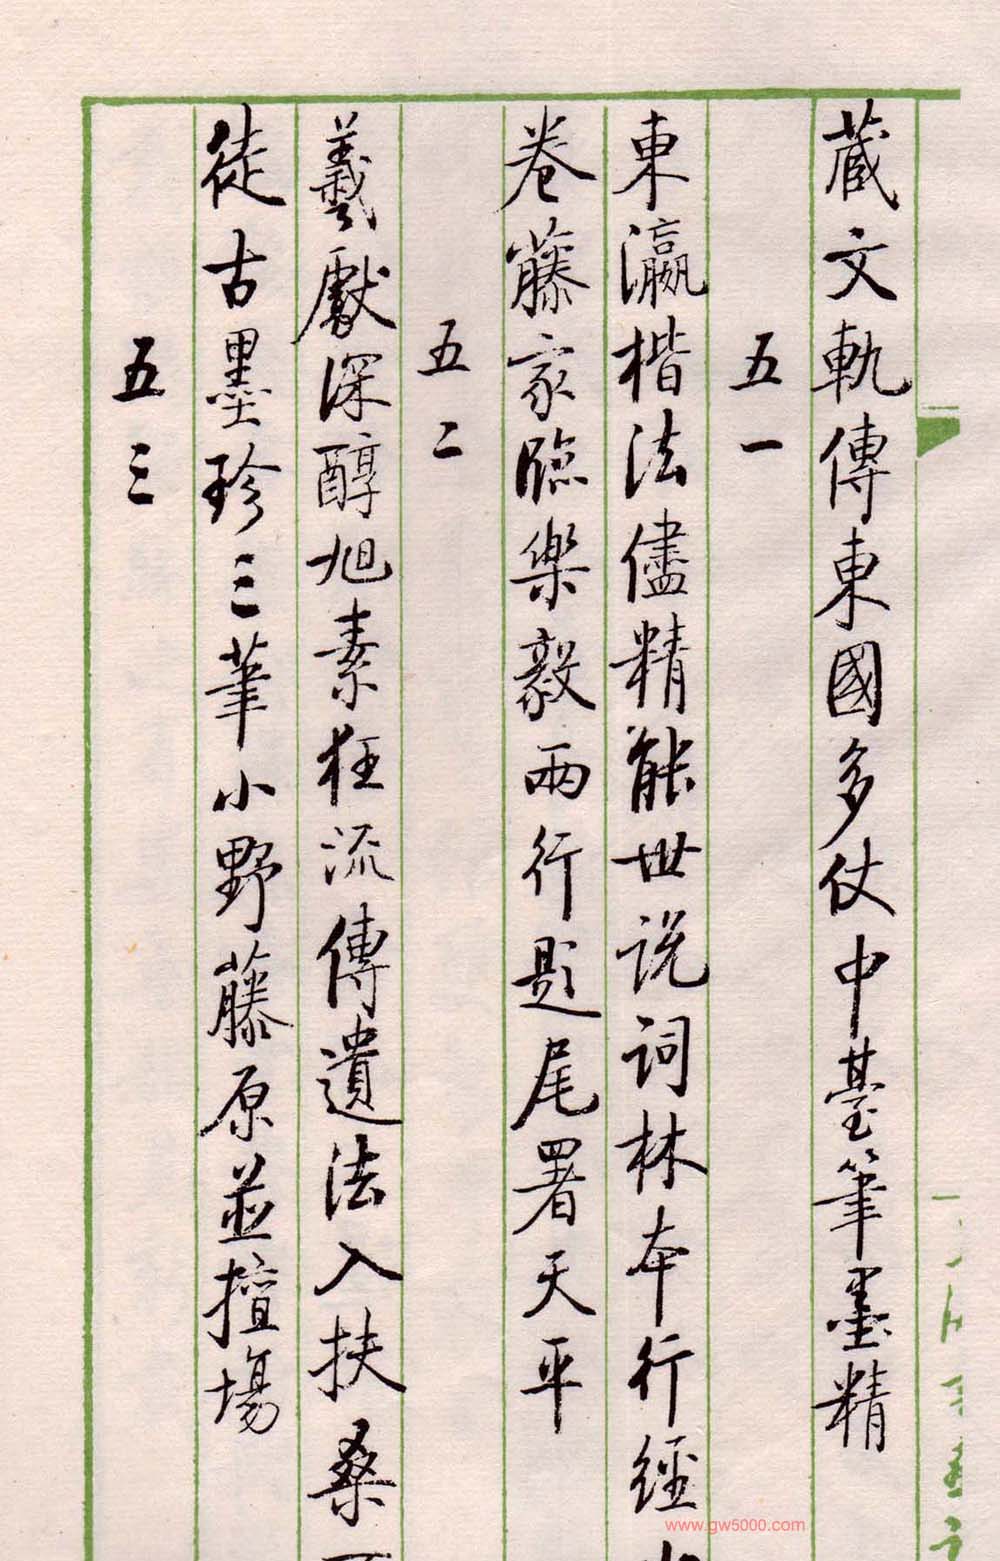 蔵文軌傳東國多仗中臺筆墨精
五一
東瀛楷法儘精能世说词林本行經
卷藤家臨樂毅兩行題尾署天平
五二
羲獻深醇旭素狂流傳遺法入扶桑
徒古墨珍三筆小野藤原並擅場
五三
www.gw5000.com